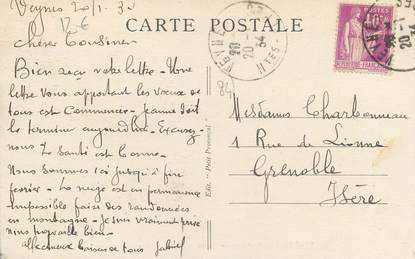 CARTE POSTALE
Veynes 20/1-34
12 €
Chères Cousines
Bien reçu votre lettre - Votre
lettre vous apportant les vœux de
tous est Commencée - Jeanne doit
la terminer aujourd'hui - Excusez
nous La Santé est bonne -
Nous sommes ici jusqu'à fin
février - La neige est en permanence
impossible faire des randonnées
en montagne - Je suis vraiment
bien -
affectueux baisers de tous Gabriel
Edit. "Petit Provençal"
84
Mesdames Charbonneau
1 Rue de Lionne
Grenoble
Isère
VEYNES
20
20-1
34
HTES-
40c
POSTES